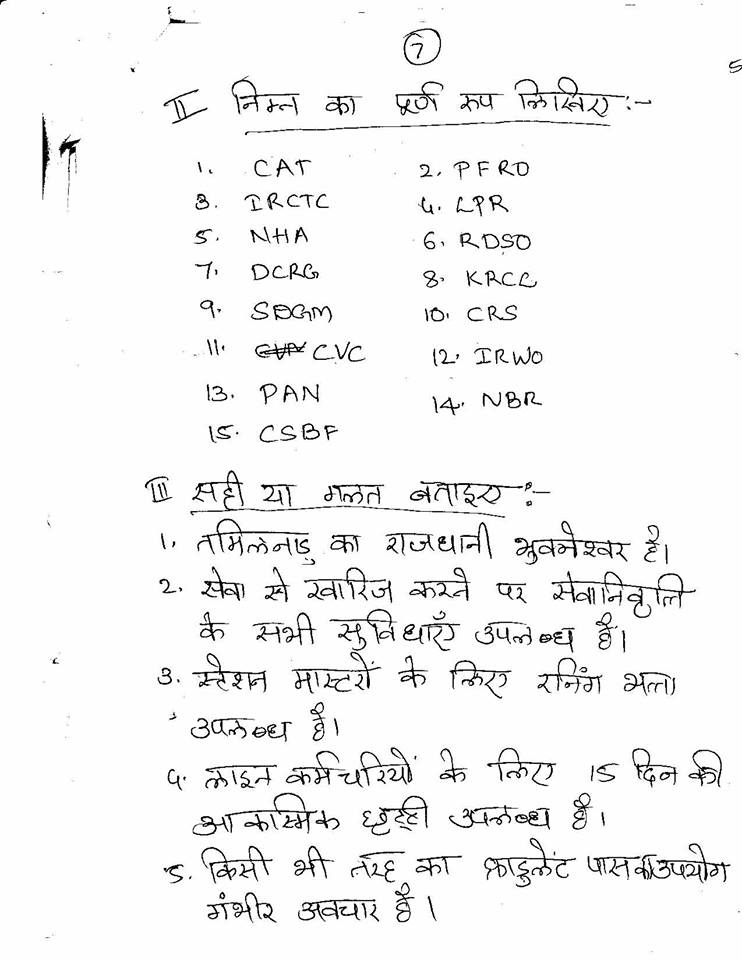 7
5
II निम्न का पूर्ण रूप लिखिए :-
1. CAT 2. PFRD
3. IRCTC 4. LPR
5. NHA 6. RDSO
7. DCRG 8. KRCL
9. SDGM 10. CRS
11. CVC 12. IRWO
13. PAN 14. NBR
15. CSBF
III सही या गलत बताइए :-
1. तमिलनाडु का राजधानी भुवनेश्वर है।
2. सेवा से खारिज करने पर सेवानिवृति
के सभी सुविधाएँ उपलब्ध हैं।
3. स्टेशन मास्टरों के लिए रनिंग भत्ता
उपलब्ध है।
4. लाइन कर्मचरियों के लिए 15 दिन की
आकस्मिक छुट्टी उपलब्ध है।
5. किसी भी तरह का फ्राडुलेंट पास का उपयोग
गंभीर अवचार है।